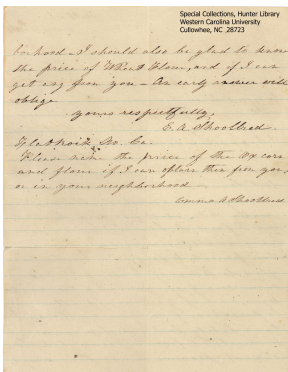 Special Collections, Hunter Library
Western Carolina University
Cullowhee, NC 28723
borhood - I should also be glad to know
the price of Wheat Flour, and if I can
get any from you - An early answer will
oblige
yours respectfully,
E. A. Shoolbred.
Flat Rock N. Ca.
Please name the prices of the ox corn
and flour if I can obtain them from you,
or in your neighborhood
Emma A Shoolbred